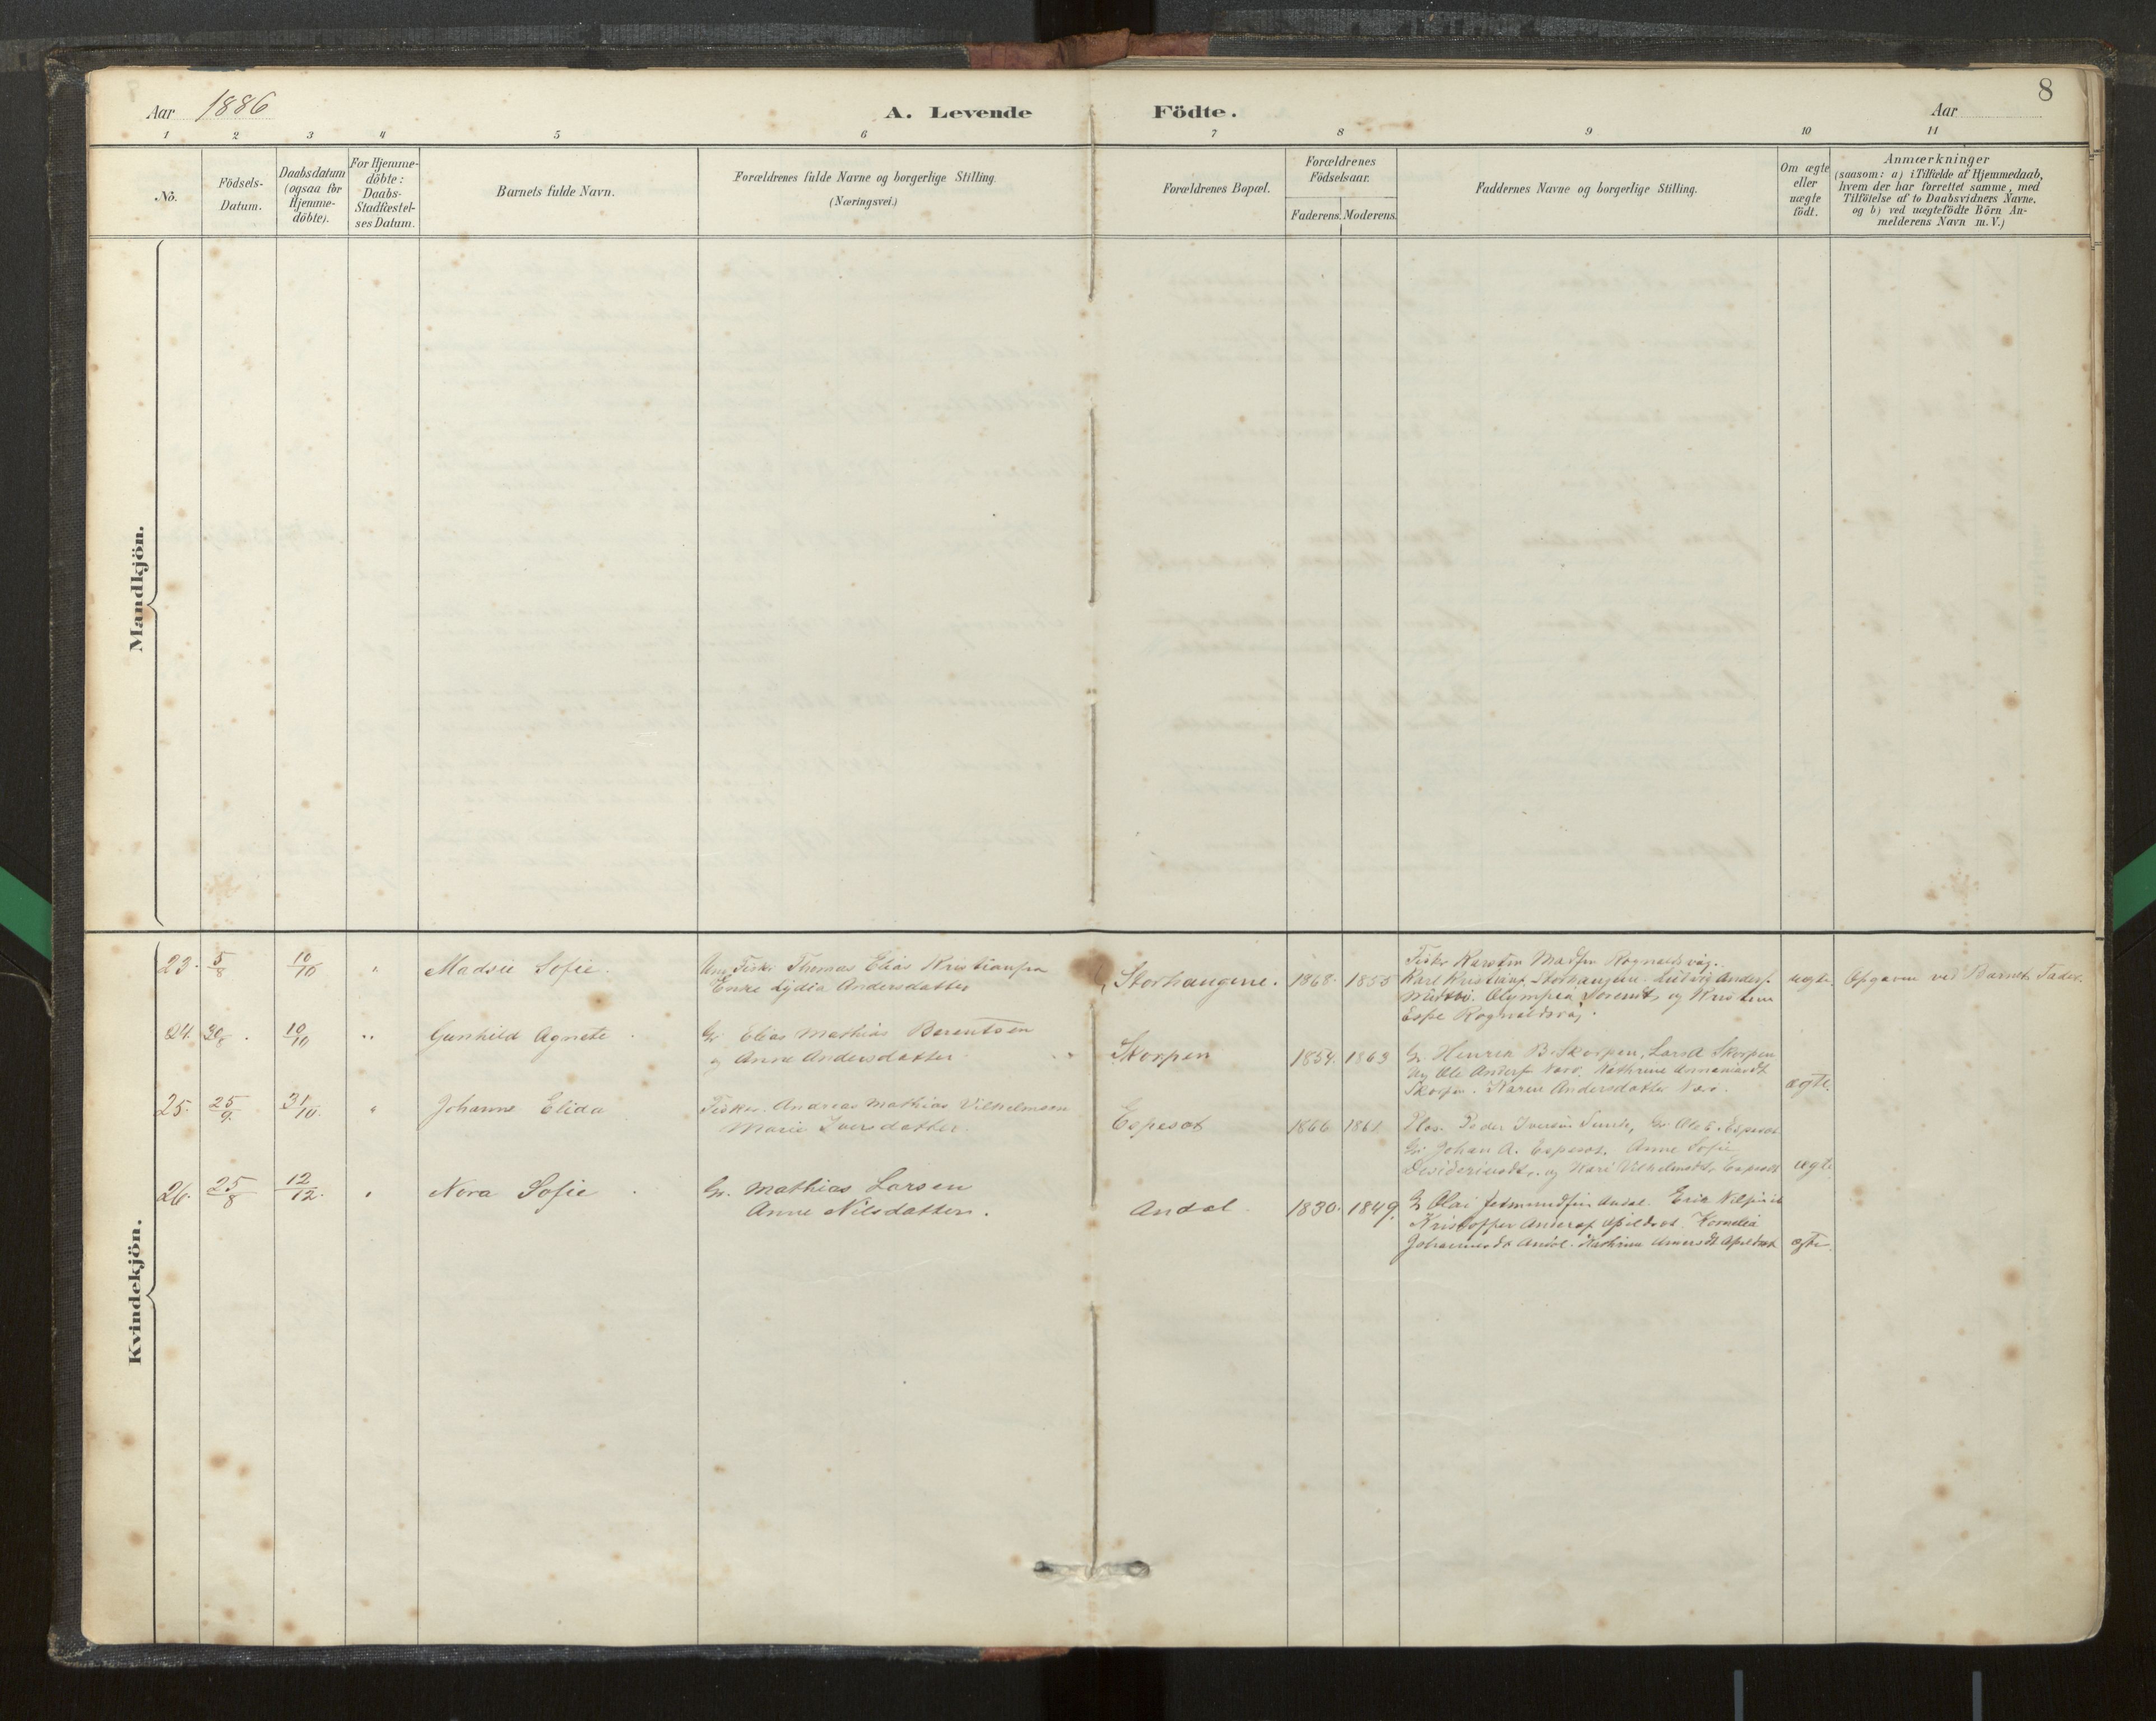 8
Aar 1886
A. Levende Födte.
Aar
1 2 3 4 5 6 7 8 9 10 11
No.
Födsels-
Datum.
Daabsdatum
(ogsaa for
Hjemme-
döbte).
For Hjemme-
döbte:
Daabs-
Stadfæstel-
ses Datum.
Barnets fulde Navn.
Forældrenes fulde Navne og borgerlige Stilling
(Næringsvei.)
Forældrenes Bopæl.
Forældrenes
Födselsaar.
Faderens. Moderens.
Faddernes Navne og borgerlige Stilling.
Om ægte
eller
uægte
födt.
Anmærkninger
(saasom: a) i Tilfælde af Hjemmedaab,
hvem der har forrettet samme, med
Tilföielse af to Daabsvidners Navne.
og b) ved uægtefödte Börn An-
melderens Navn m.V.)
Mandkjön.
Kvindekjön.
23. 5/8 10/10 " Madsie Sofie.
Ung. Fisker Thomas Elias
Enke Lydia Andersdatter
Storhaugene. 1868. 1855
Fisker Karsten Madsen Rognaldsvåg.
Karl
Olympia og
Espe
uegte. Opgaven ved Barnets Fader.
24. 30/8. 10/10 " Gunhild Agnete.
Gr. Elias Mathias Berentsen
og Anne Andersdatter
Skorpen 1854. 1863
Gr. Henrik B. Skorpen, Lars A. Skorpen
Ug Ole
Skorpen. Karen Andersdatter
ægte.
25. 25/9. 31/10. " Johanne Elida
Fisker. Andreas Mathias Vilhelmsen
Marie Iversdatter.
Espeset 1866 1861
Peder Iversen Gr. Ole E. Espeset
Gr. Johan A. Espeset. Anne Sofie
og
ægte
26. 25/8 12/12. " Nora Sofie.
Gr. Mathias Larsen
Anne Nilsdatter.
Andal 1830. 1849.
G. Olai Andal.
Kristoffer Kornelia
Andal. Kathrine
ægte.